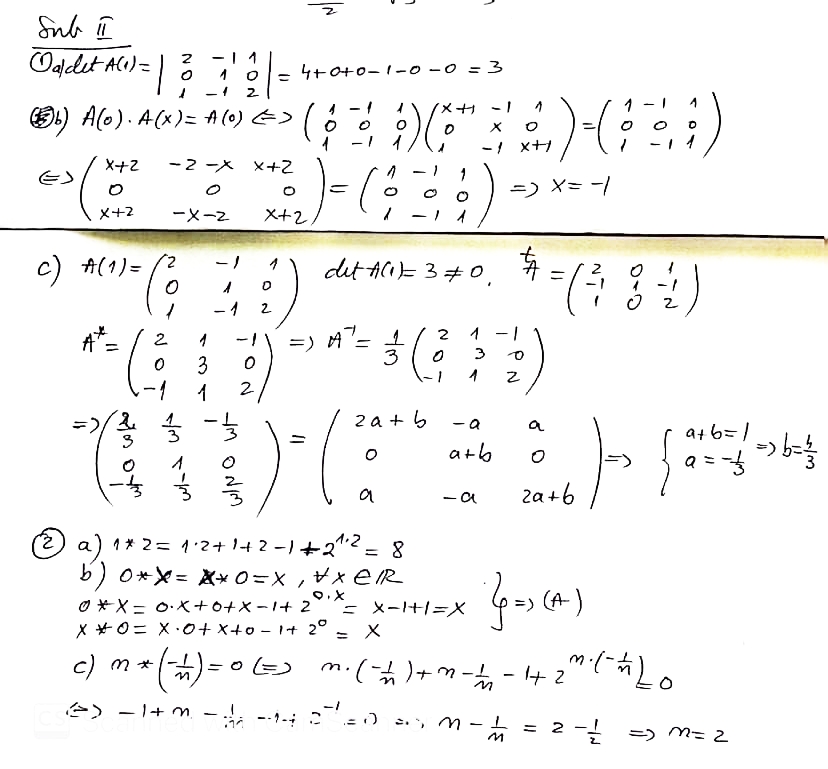 Sub II
① a) det A(1) = | 2 -1 1 ; 0 1 0 ; 1 -1 2 | = 4+0+0-1-0-0 = 3
b) A(0) · A(x) = A(0) <=> ( 1 -1 1 ; 0 0 0 ; 1 -1 1 ) ( x+1 -1 1 ; 0 x 0 ; 1 -1 x+1 ) = ( 1 -1 1 ; 0 0 0 ; 1 -1 1 )
<=> ( x+2 -2-x x+2 ; 0 0 0 ; x+2 -x-2 x+2 ) = ( 1 -1 1 ; 0 0 0 ; 1 -1 1 ) => x = -1
c) A(1) = ( 2 -1 1 ; 0 1 0 ; 1 -1 2 ) det A(1) = 3 ≠ 0, ᵗA = ( 2 0 1 ; -1 1 -1 ; 1 0 2 )
A* = ( 2 1 -1 ; 0 3 0 ; -1 1 2 ) => A⁻¹ = 1/3 ( 2 1 -1 ; 0 3 0 ; -1 1 2 )
=> ( 2/3 1/3 -1/3 ; 0 1 0 ; -1/3 1/3 2/3 ) = ( 2a+b -a a ; 0 a+b 0 ; a -a 2a+b ) => { a+b=1 ; a=-1/3 => b=4/3
② a) 1*2 = 1·2+1+2-1+2^1·2 = 8
b) 0*x = x*0 = x, ∀x∈ℝ
0*x = 0·x+0+x-1+2^0·x = x-1+1=x } => (A)
x*0 = x·0+x+0-1+2⁰ = x
c) n*(-1/n) = 0 <=> n·(-1/n)+n-1/n-1+2^n·(-1/n) = 0
<=> -1+n-1/n -1+2⁻¹=0 n-1/n = 2-1/2 => n=2